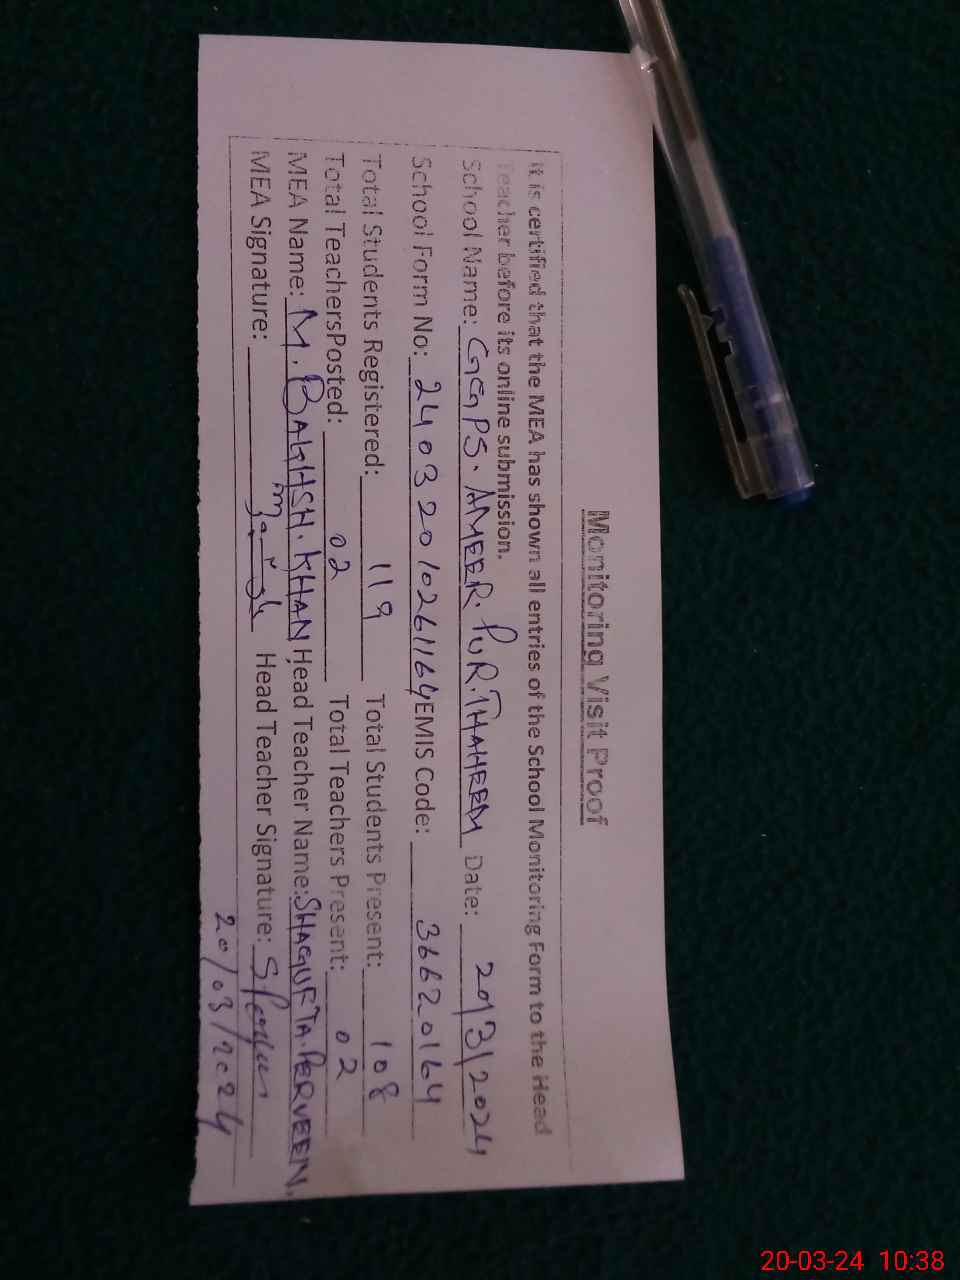 Monitoring Visit Proof
It is certified that the MEA has shown all entries of the School Monitoring Form to the Head
Teacher before its online submission.
School Name: GGPS. AMEER. PUR. THAHEEM Date: 20/3/2024
School Form No: 24032010261164 EMIS Code: 36620164
Total Students Registered: 119 Total Students Present: 108
Total TeachersPosted: 02 Total Teachers Present: 02
MEA Name: M. BAKHSH. KHAN Head Teacher Name: SHAGUFTA. PERVEEN.
MEA Signature: Head Teacher Signature:
20/03/2024
20-03-24 10:38